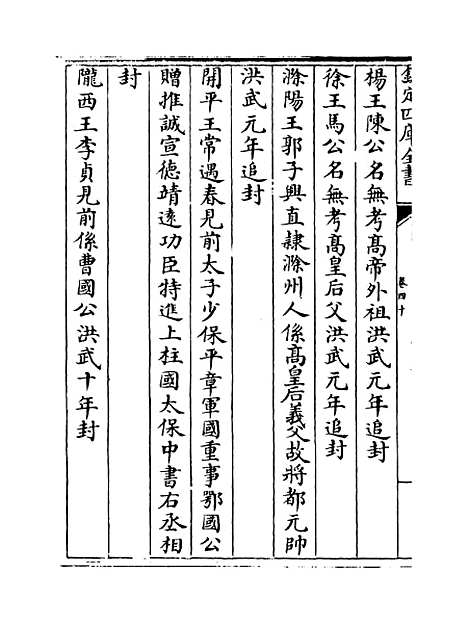 欽定四庫全書
卷四十
楊王陳公名無考髙帝外祖洪武元年追封
徐王馬公名無考髙皇后父洪武元年追封
滁陽王郭子興直隷滁州人係髙皇后義父故將都元帥
洪武元年追封
開平王常遇春見前太子少保平章軍國重事鄂國公
贈推誠宣德靖逺功臣特進上柱國太保中書右丞相
封
隴西王李貞見前係曹國公洪武十年封